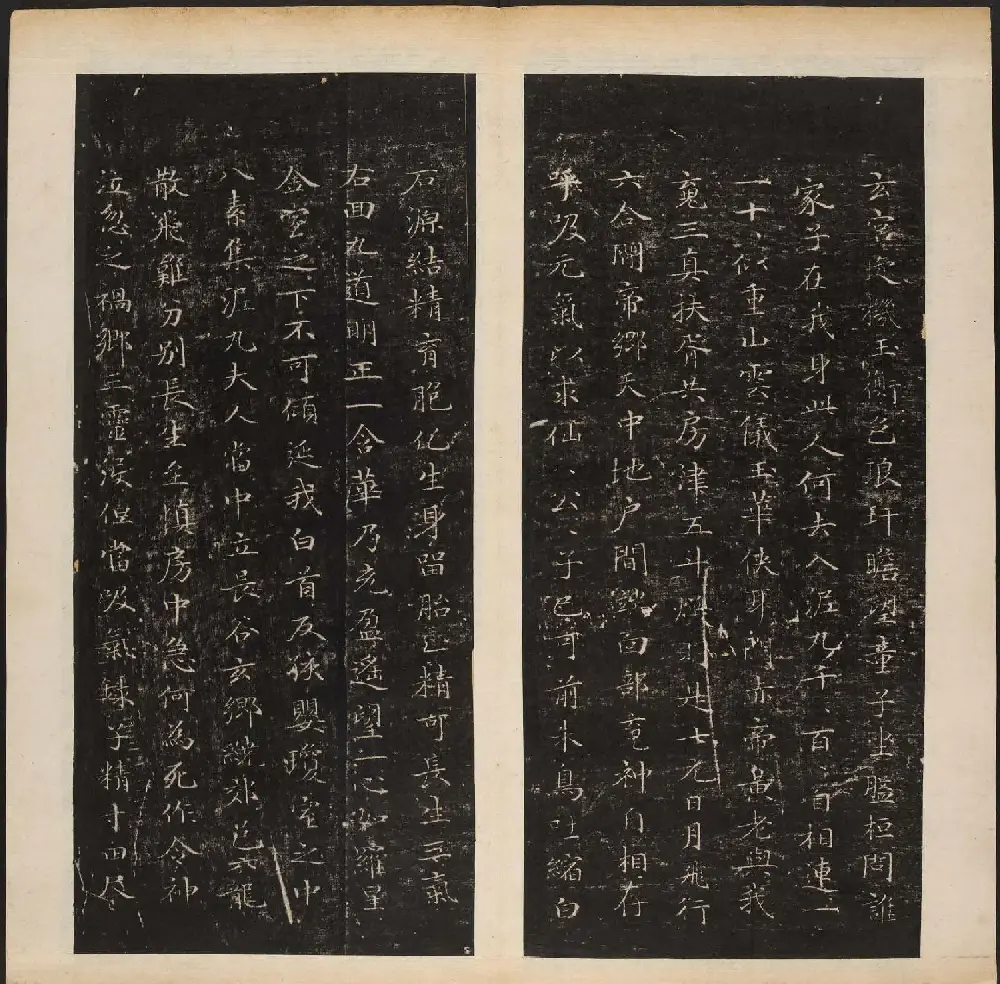 玉衡色琅玕瞻望童子坐盤桓問誰
家子在我身此人何去入泥丸千、百、自相連一
一十、似重山雲儀玉華俠耳門赤帝黃老與我
魂三真扶胥共房津五斗煥明是七元日月飛行
六合間帝鄉天中地户間面部魂神自相存
呼吸元氣以求仙、公、子已可前朱鳥吐縮白
石源結精育胞化生身留胎止精可長生三氣
右回九道明正一含華乃充盈遙望一心如羅星
金室之下不可傾延我白首反孩嬰瓊室之中
八素集泥丸夫人當中立長谷玄鄉繞郊邑六龍
散飛難分別長生至慎房中急何為死作令神
泣忽之禍鄉三靈歿但當吸氣錬子精寸田尺